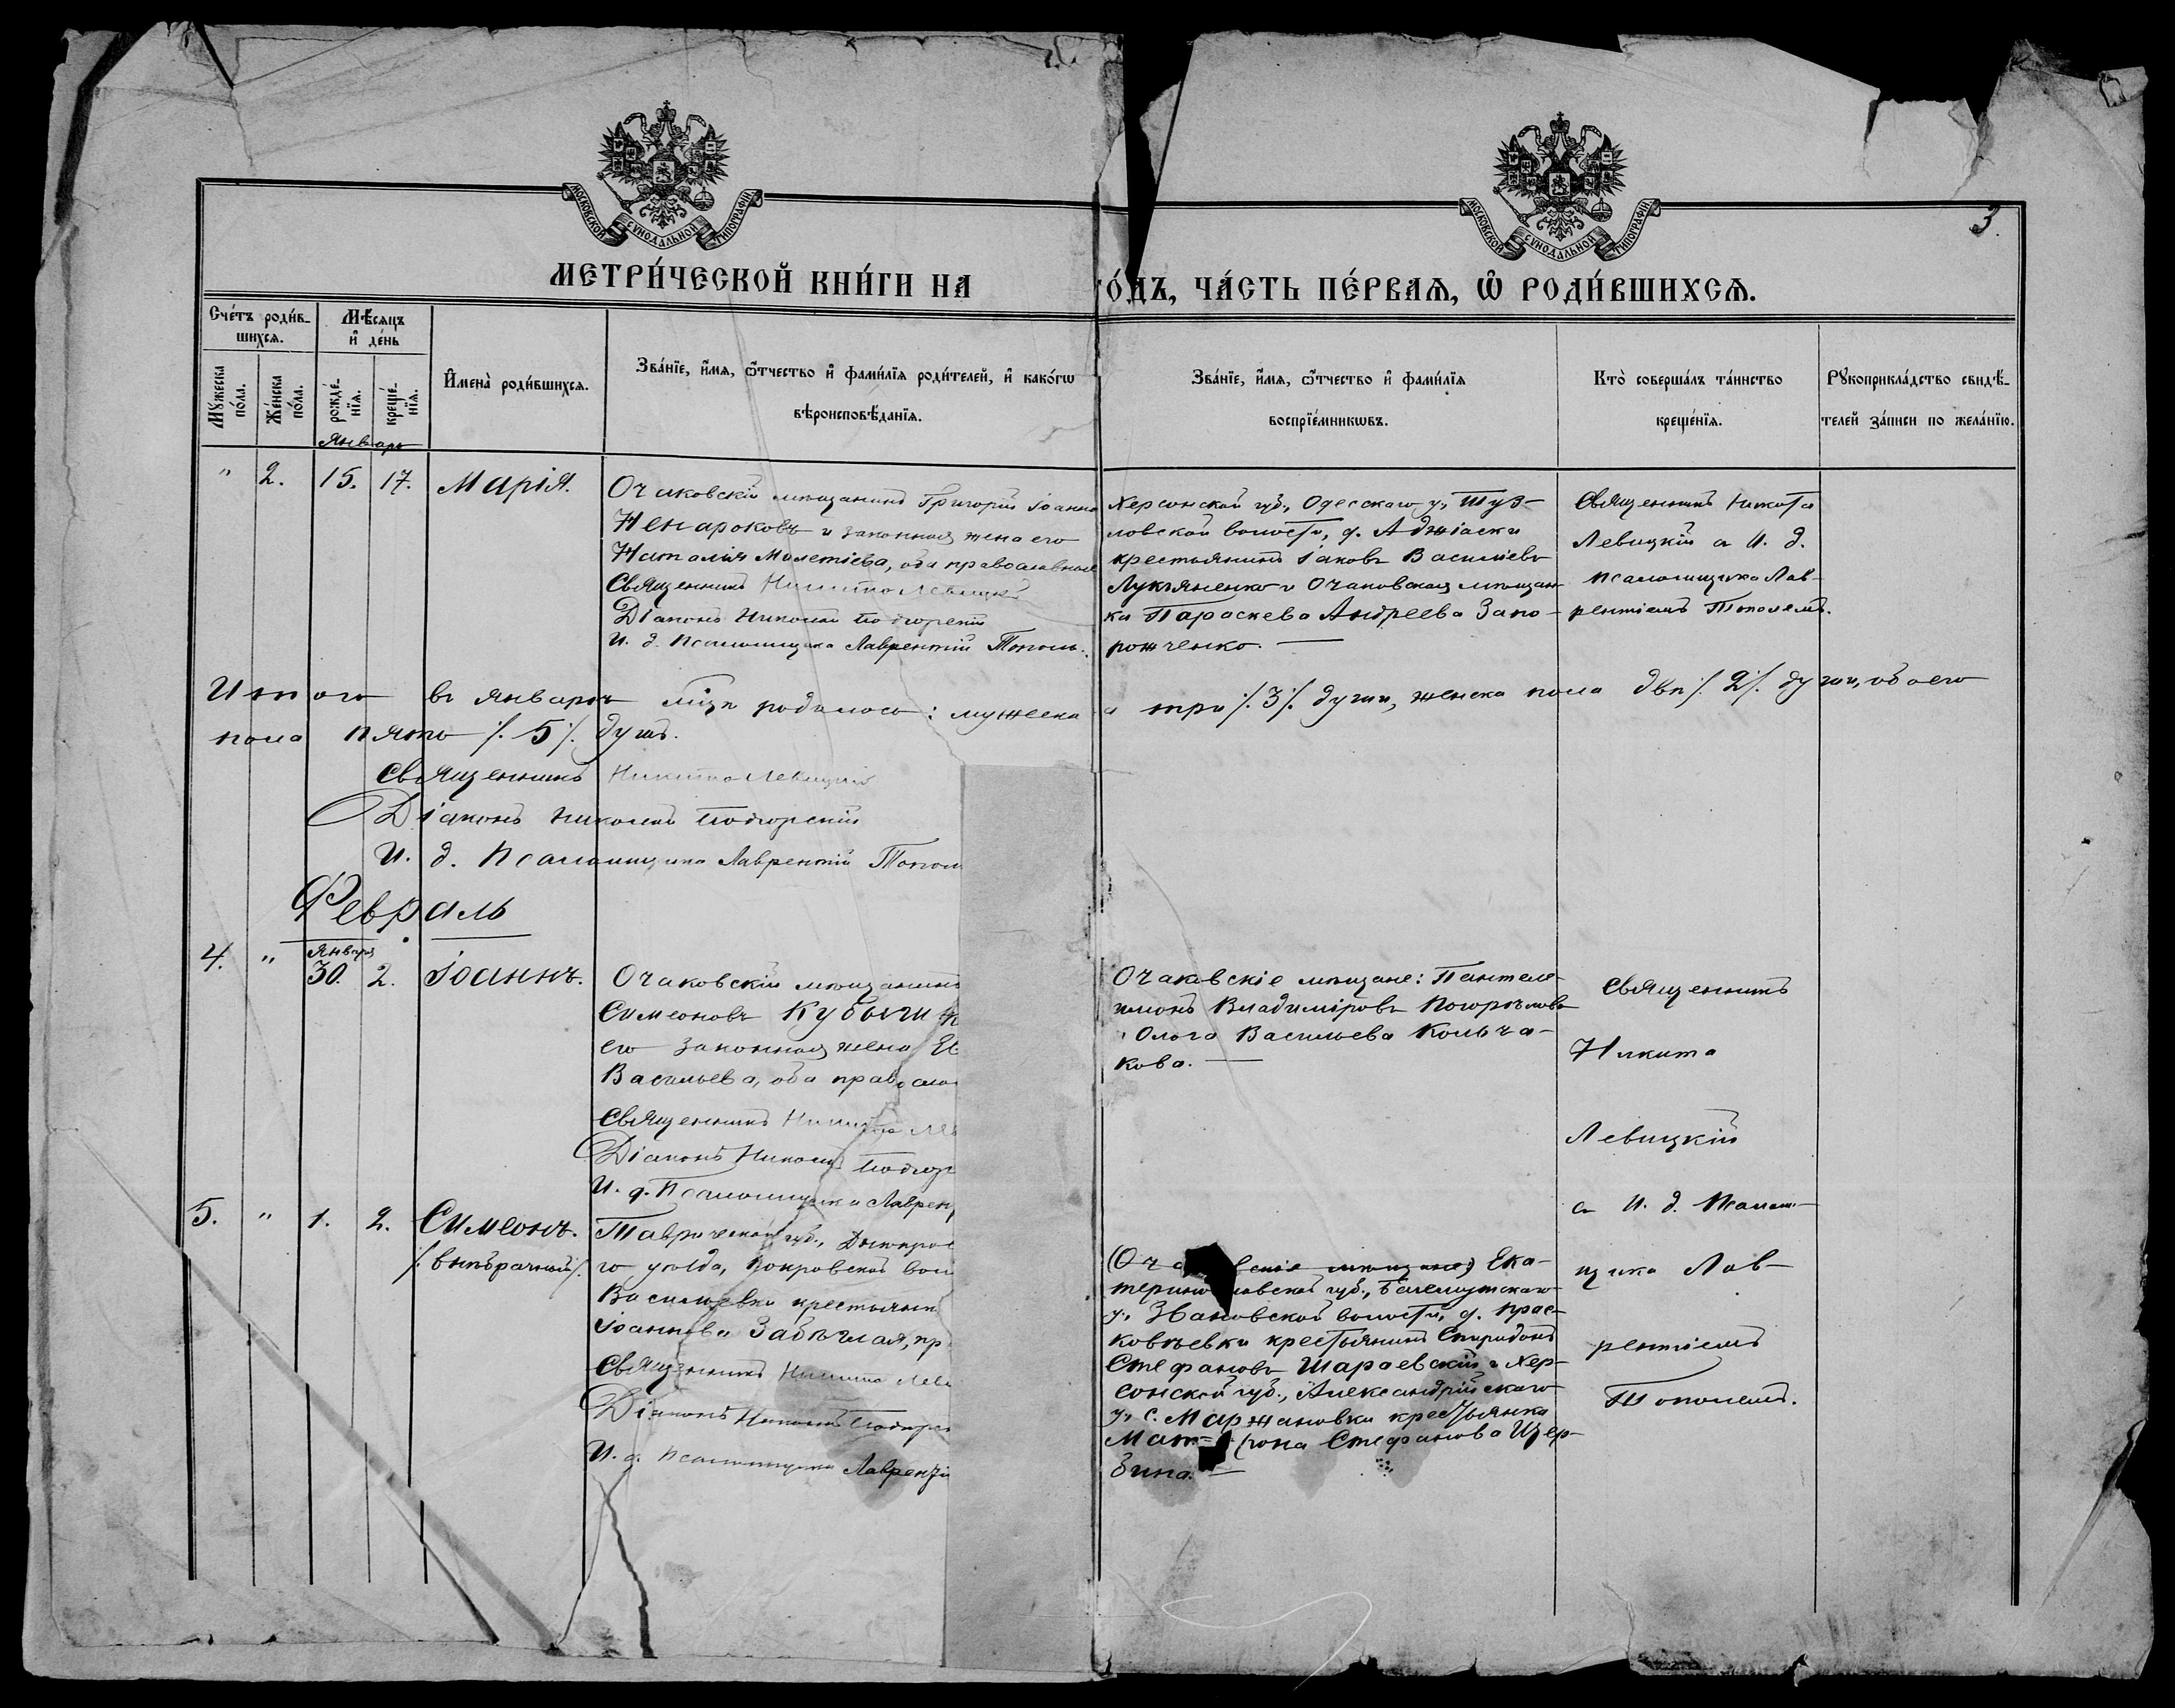 МОСКОВСКОЙ СѴНОДАЛЬНОЙ ТИПОГРАФІИ
МОСКОВСКОЙ СѴНОДАЛЬНОЙ ТИПОГРАФІИ
3.
МЕТРИ́ЧЕСКОЙ КНИ́ГИ НА
го́дъ, ЧА́СТЬ ПЕ́РВАѦ, Ѿ РОДИ́ВШИХСѦ.
Сче́тъ роди́в-
шихсѧ.
Мѣ́сѧцъ
и҆ де́нь
Мꙋ́жеска
по́ла.
Же́нска
по́ла.
рожде́-
нїѧ.
креще́-
нїѧ.
И҆мена̀ роди́вшихсѧ.
Зва́нїе, и҆́мѧ, ѻ҆́тчество и҆ фами́лїѧ роди́телей, и҆ како́гѡ
вѣроисповѣ́данїѧ.
Зва́нїе, и҆́мѧ, ѻ҆́тчество и҆ фами́лїѧ
воспрїе́мникѡвъ.
Кто̀ соверша́лъ та́инство
креще́нїѧ.
Рꙋкоприкла́дство свидѣ́-
телей за́писи по жела́нїю.
Январь
" 2. 15. 17. Марія.
Очаковскій мѣщанинъ Григорій Іоанно
Ненароковъ и законная жена его
Наталія Мелетіева, оба православные
Священникъ Никита Левицкій
Діаконъ Николай Подгорскій
И. д. Псаломщика Лаврентій Тополь.
Херсонской губ., Одесскаго у., Туз-
ловской волости, д. Аджіаски
крестьянинъ Іаковъ Василіевъ
Лукьяненко и Очаковская мѣщан-
ка Параскева Андреева Запо-
рожченко. —
Священникъ Никита
Левицкій съ И. д.
псаломщика Лав-
рентіемъ Тополемъ.
Итого въ январѣ мцѣ родилось: мужеска
а три /.3/. души, женска пола двѣ /.2/. души, обоего
пола пять /.5/. душъ.
Священникъ Никита Левицкій
Діаконъ Николай Подгорскій
И. д. Псаломщика Лаврентій Топол
Февраль
4. " Января
30. 2. Іоаннъ.
Очаковскій мѣщанинъ
Симеоновъ Кубы
его законная жена
Васильева, оба правосла
Священникъ Никита Ле
Діаконъ Николай Подгор
И. д. Псаломщика Лаврен
Очаковскіе мѣщане: Пантеле-
имонъ Владиміровъ Погорѣловъ
и Ольга Васильева Кольча-
кова. —
Священникъ
Никита
Левицкій
съ И. д. Псалом-
щика Лав-
рентіемъ
Тополемъ.
5. " 1. 2. Симеонъ.
/. внѣбрачный/.
Таврической губ., Днѣпров
го уѣзда, Покровской вол
Васильевки крестьянк
Іоаннова Забѣглая, пр
Священникъ Никита Леви
Діаконъ Николай Подгорс
И. д. Псаломщика Лаврентій
(Оча вскіе мѣщане) Ека-
терино лавской губ., Бахмутскаго
у., Звановской волости, д.
крестьянинъ Спиридонъ
Стефановъ Шараевскій и Хер-
сонской губ., Александрійскаго
у., с. Маржановки крестьянка
Мат- рона Стефанова Щер-
бина. —